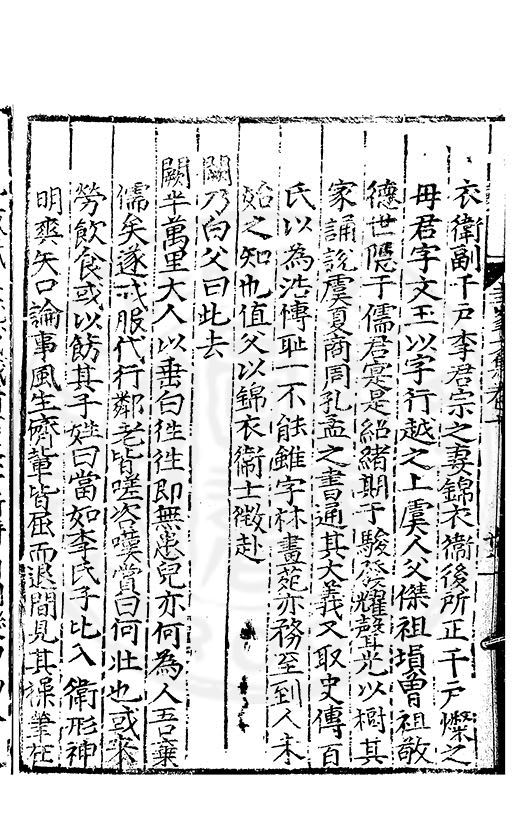 衣衛副千戸李君宗之妻錦衣衛後所正千戸燦之
母君字文玉以字行越之上虞人父傑祖塤曾祖敬
德世隱于儒君寔是紹緒期于駿發耀聲光以樹其
家誦說虞夏商周孔孟之書通其大義又取史傳百
氏以為浩博恥一不能雖字林畫苑亦務至到人未
始之知也值父以錦衣衞士徵赴
闕乃白父曰此去
闕半萬里大人以垂白徃徃即無患兒亦何為人吾棄
儒矣遂戎服代行鄰老皆嗟咨嘆賞曰何壯也或來
勞飲食或以飭其子姓曰當如李氏子比入衛形神
明爽矢口論事風生儕輩皆屈而退間見其操筆在